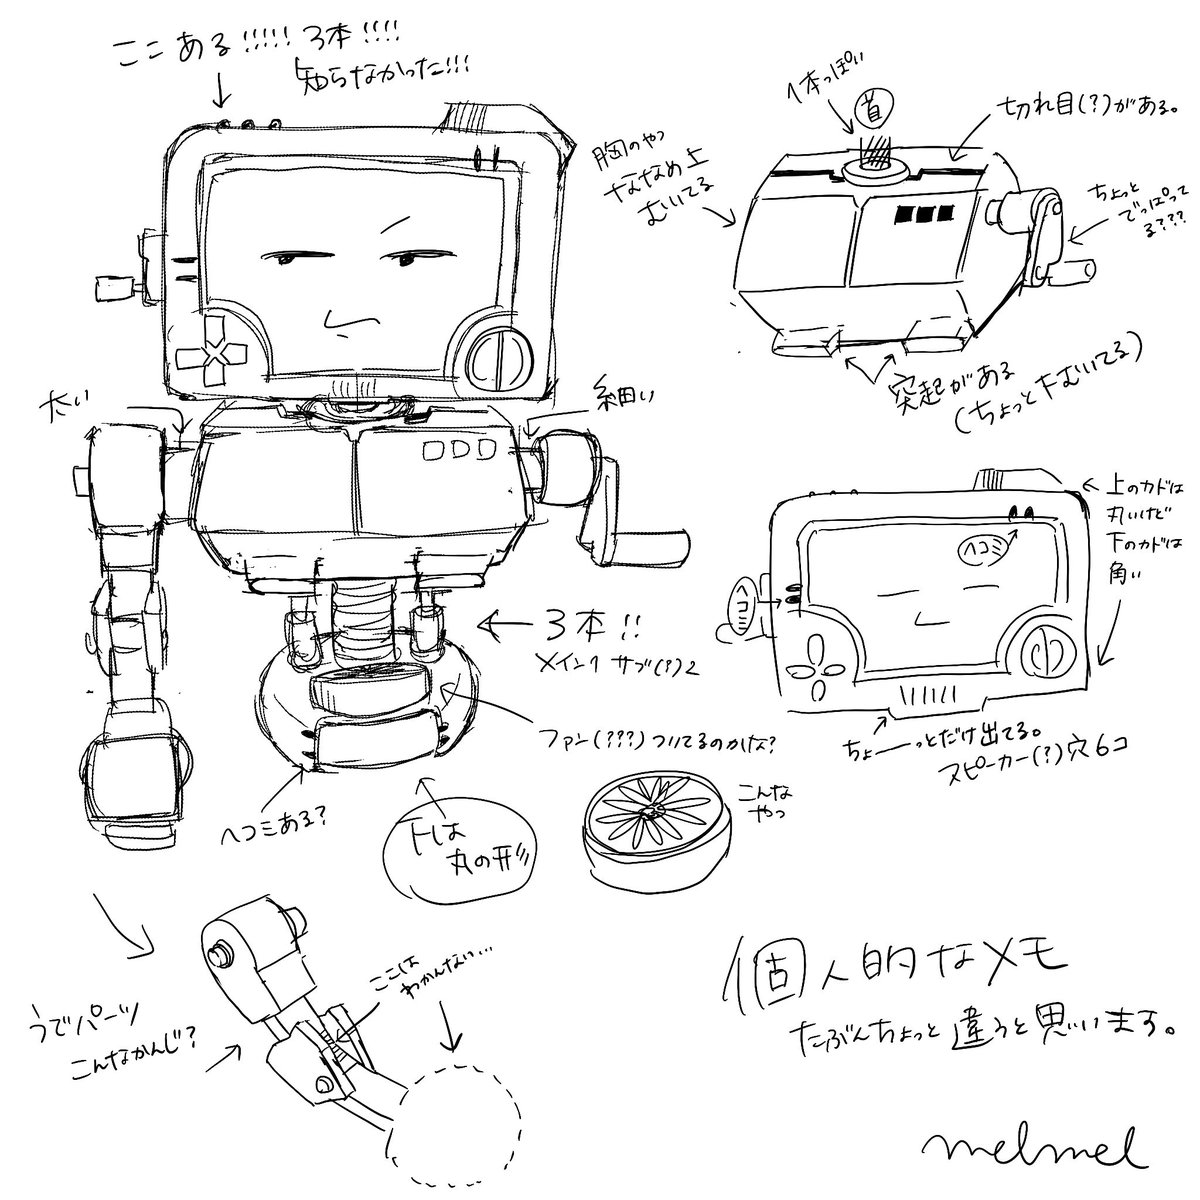 ここある!!!!! 3本!!!!
知らなかった!!!
1本っぽい
首
切れ目(?)がある。
胸のやつ
ななめ上
むいてる
ちょっと
でっぱって
る????
突起がある
(ちょっと下むいてる)
太い
細い
上のカドは
丸いけど
下のカドは
角い
ヘコミ
ヘコミ
3本!!
メイン1 サブ(?)2
ちょーーっとだけ出てる。
スピーカー(?)穴6コ
ファン(???)ついてるのかな?
こんな
やつ
ヘコミある?
下は
丸の形
ここは
わかんない…
うでパーツ
こんなかんじ?
個人的なメモ
たぶんちょっと違うと思います。
melmel